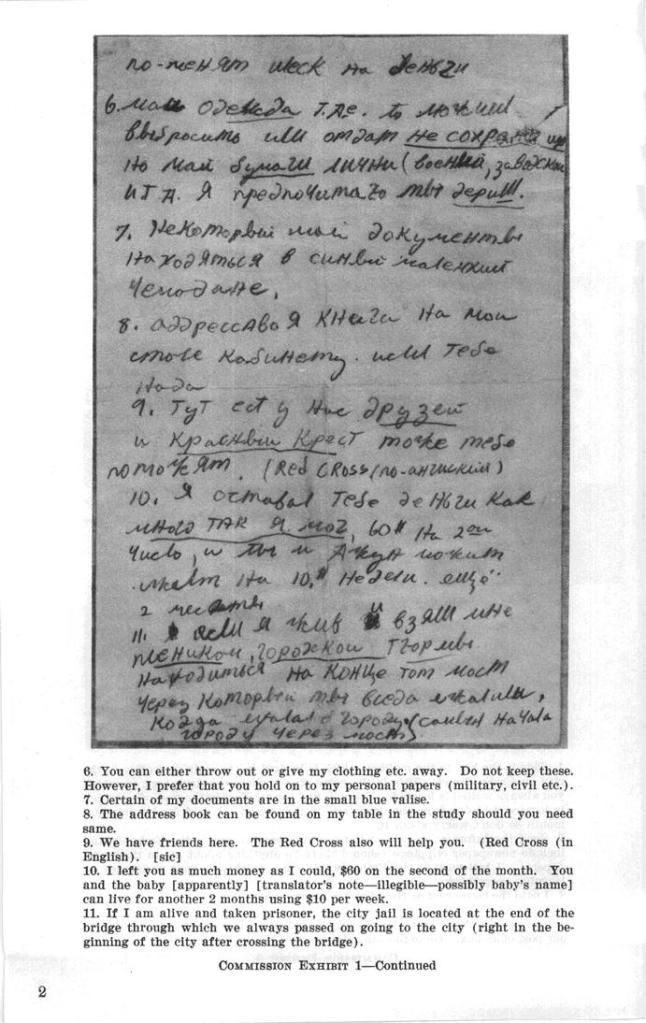 по-менят ческ на деньги
6. маи одежда т.де. ты можиш
выбросить или отдат не сохраняй
но май бумаги лични (военый, заводской
и т д. Я предпочитаю ты держиш.
7. Некоторый мой документы
находяться в синвы маленкий
чемодане,
8. аддрессавая книга на мои
столе кабинету. если тебе
нада
9. Тут ест у нас друзей
и Красный Крест тоже тебе
поможят. (Red CROSS по-английски)
10. Я оставал тебе деньги как
много так я мог, 60$ на 2ой
число, и ты и можит
на 10.$ недели. ещё
2 месяты
11. если я жив и взяли мне
пленикои, городжкои тюрмы
находиться на конце тот мост
через которвы ты всегда
когда ехала в городу (самвы начала
городу через мост)
6. You can either throw out or give my clothing etc. away. Do not keep these.
However, I prefer that you hold on to my personal papers (military, civil etc.).
7. Certain of my documents are in the small blue valise.
8. The address book can be found on my table in the study should you need
same.
9. We have friends here. The Red Cross also will help you. (Red Cross (in
English). [sic]
10. I left you as much money as I could, $60 on the second of the month. You
and the baby [apparently] [translator's note—illegible—possibly baby's name]
can live for another 2 months using $10 per week.
11. If I am alive and taken prisoner, the city jail is located at the end of the
bridge through which we always passed on going to the city (right in the be-
ginning of the city after crossing the bridge).
COMMISSION EXHIBIT 1—Continued
2